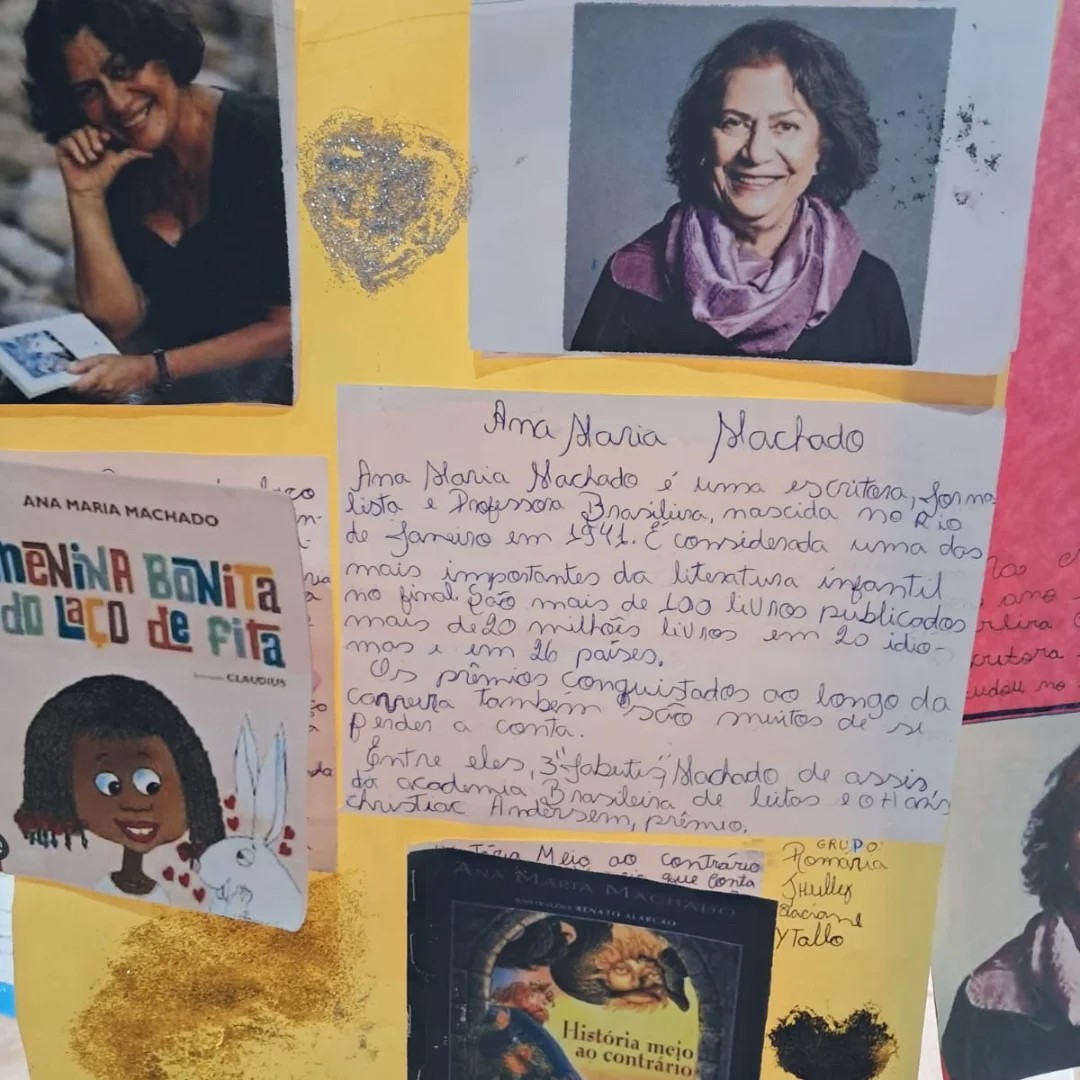 Ana Maria Machado
Ana Maria Machado é uma escritora, jorna
lista e Professora Brasilira, nascida no Rio
de Janeiro em 1941. É considerada uma das
mais importantes da literatura infantil
no final. São mais de 100 livros publicados
mais de 20 milhões livros em 20 idio-
mas e em 26 países.
Os prêmios conquistados ao longo da
carreira também são muitos de si
perder a conta.
Entre eles, 3 "Jabutis", Machado de assis,
da academia Brasileira de leitas e o Hans
christiac Andersem, prêmio.
ANA MARIA MACHADO
MENINA BONITA
DO LAÇO DE FITA
CLAUDIUS
Meio ao contrário
que conta
GRUPO:
Romária
Jhulley
Graciane
YTallo
ANA MARIA MACHADO
RENATO ALARCÃO
História meio
ao contrário
ano
critora
udou no